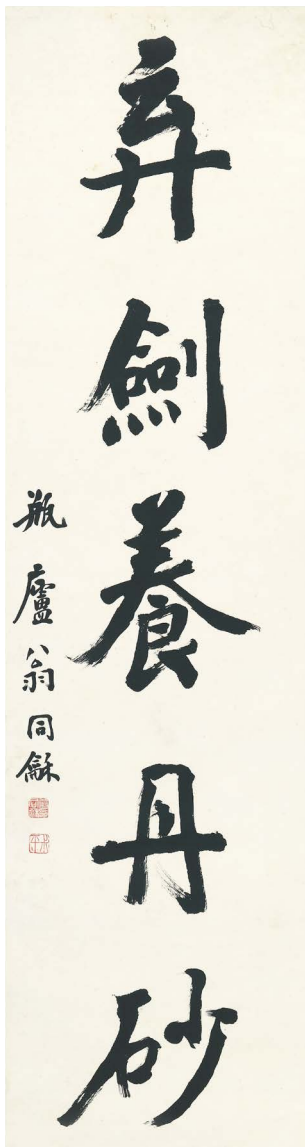 弃劍養丹砂
瓶廬翁同龢